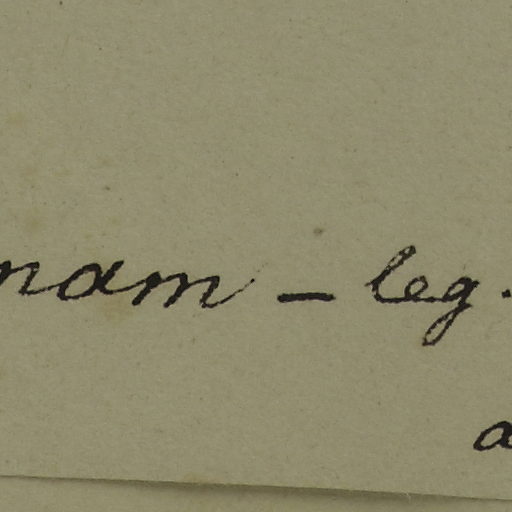 nam - leg.
a